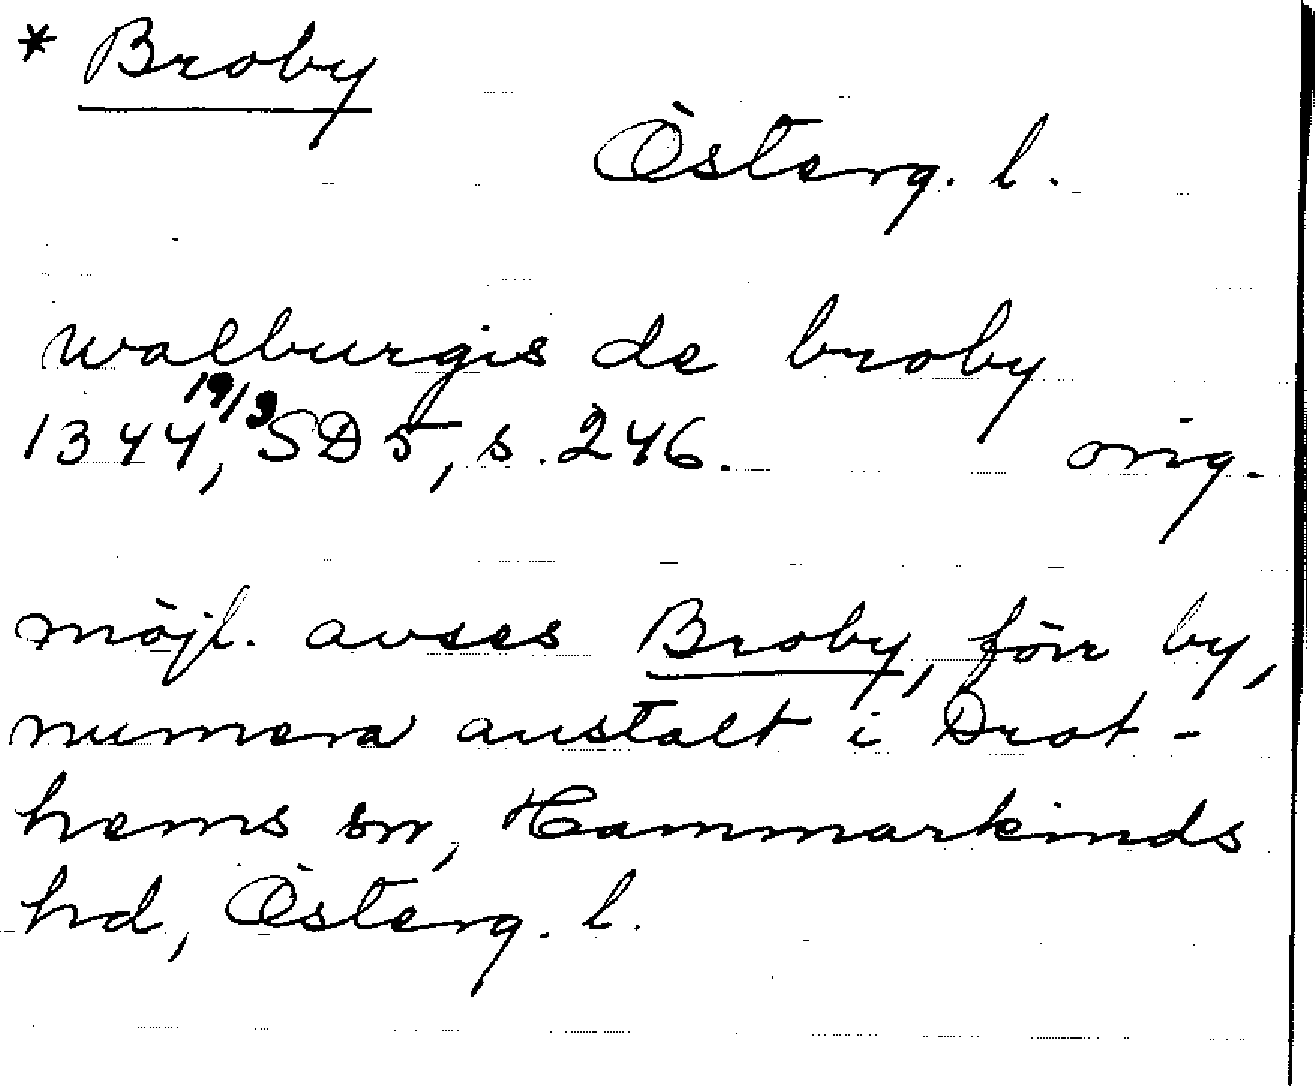 * Broby
Österg. l.
walburgis de broby
1344, 19/3 SD 5, s. 246. orig.
möjl. avses Broby, förr by,
numera anstalt i Drot-
hems sn, Hammarkinds
hd, Österg. l.